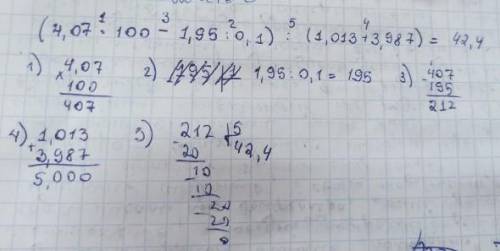 (4,07 · 100 - 1,95 : 0,1) : (1,013 + 3,987) = 42,4
1 3 2 5 4
1) 4,07 2) 1,95 : 0,1 = 195 3) 407
× 100 - 195
407 212
4) 1,013 5) 212 | 5
+ 3,987 - 20 42,4
5,000 10
- 10
20
- 20
0